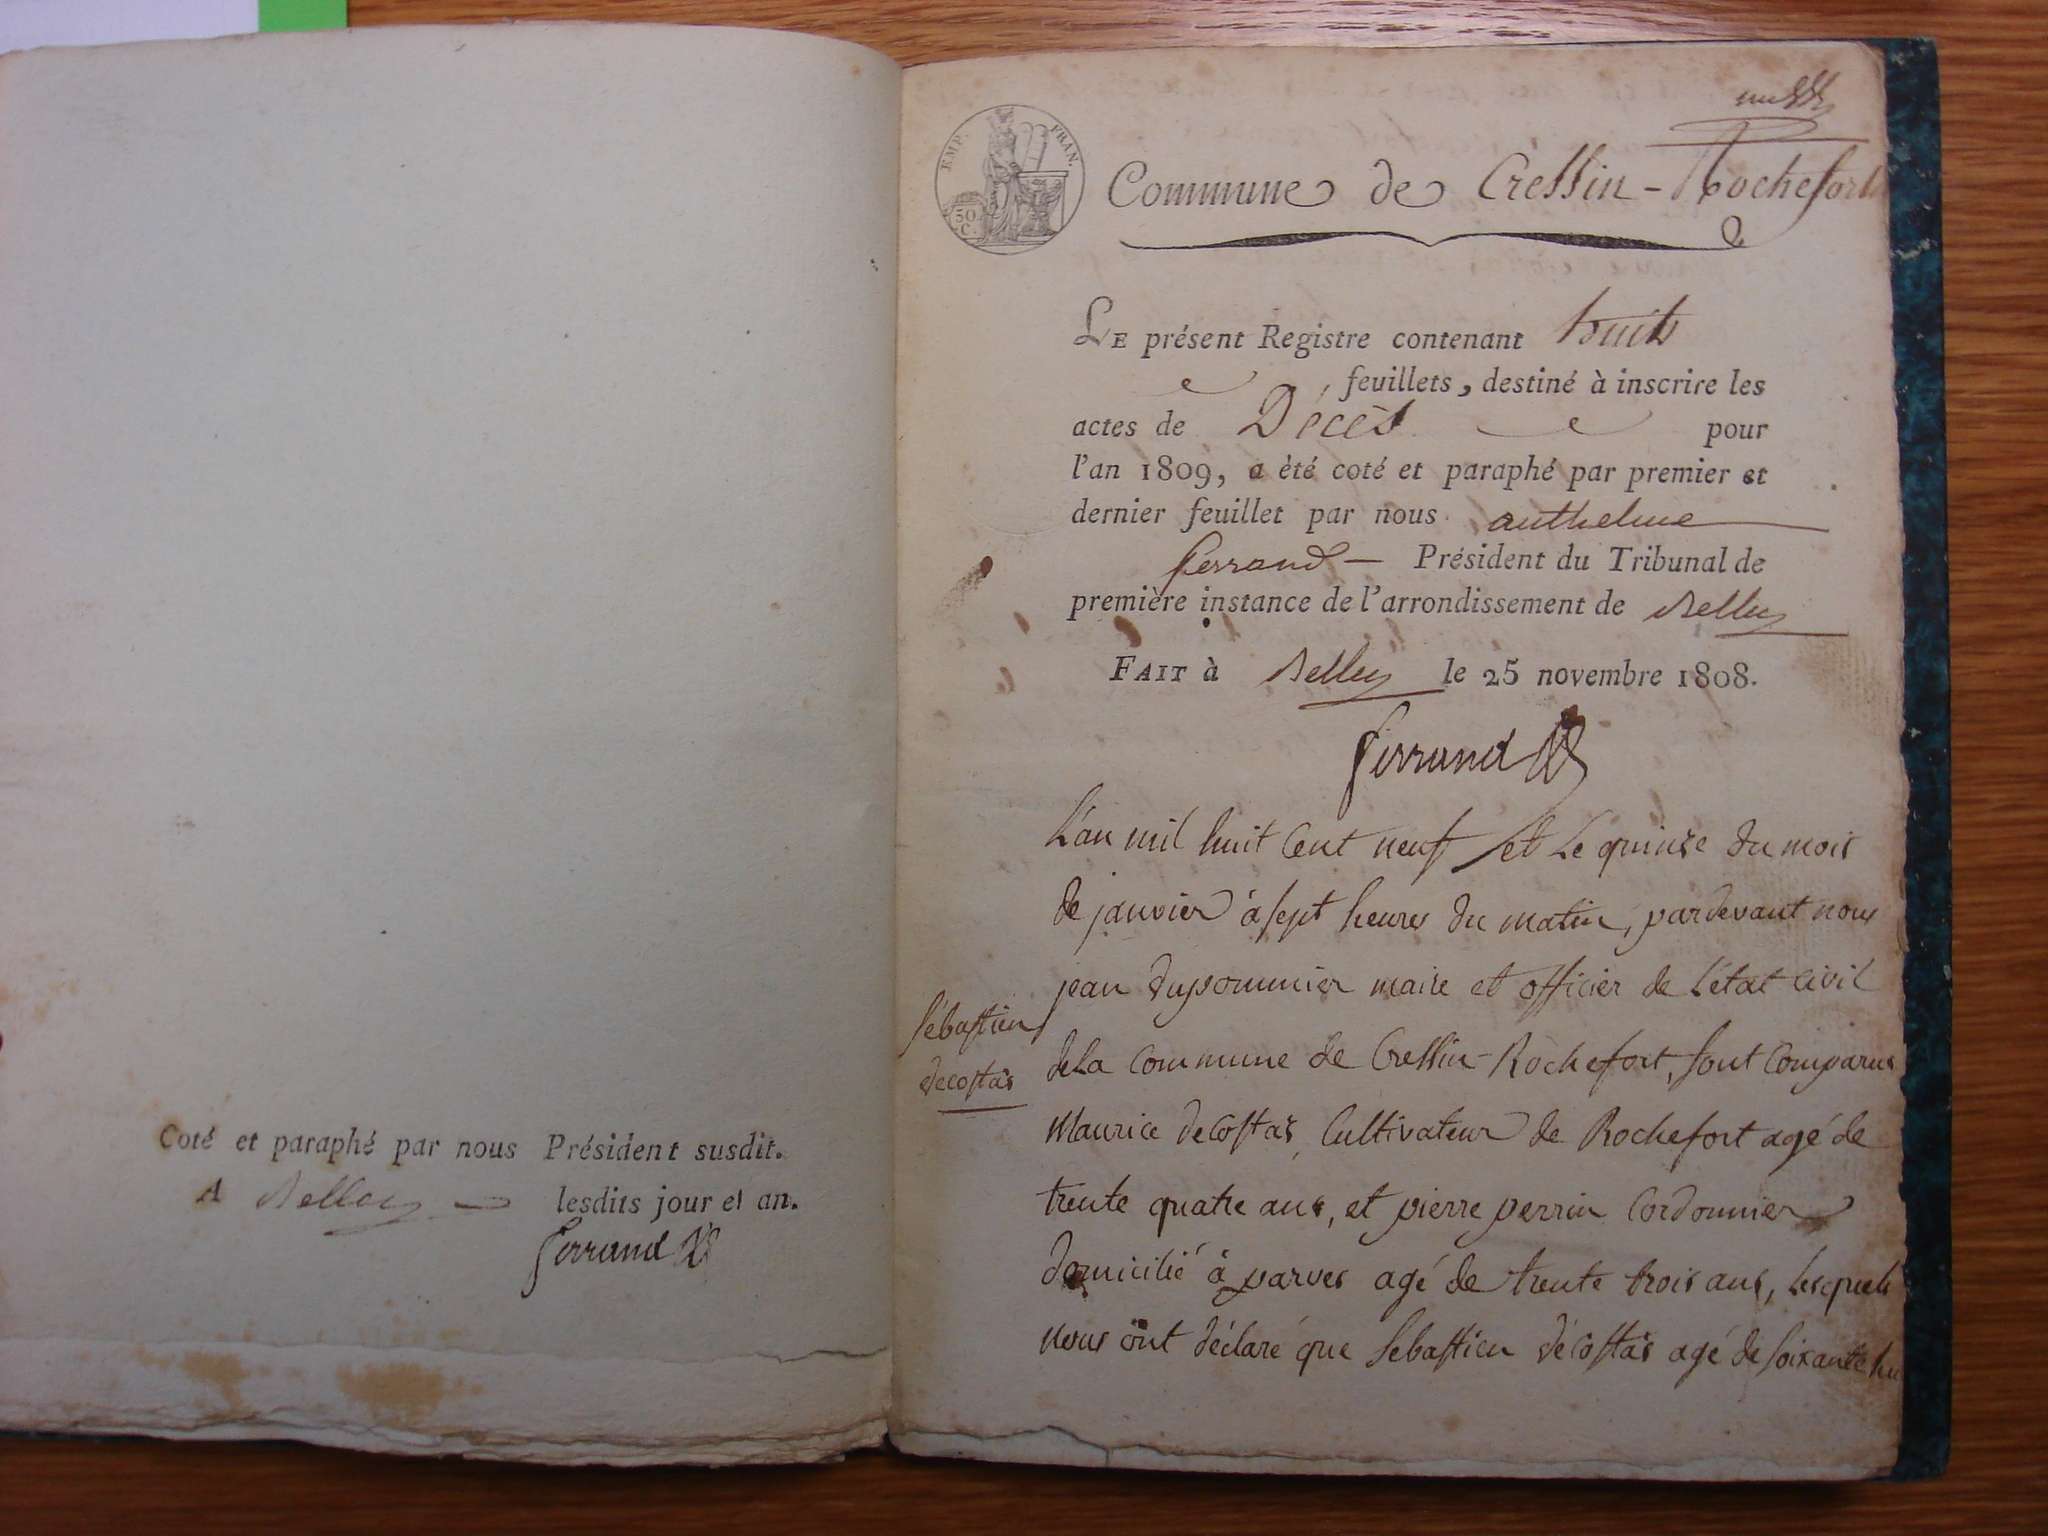 Coté et paraphé par nous Président susdit.
A Belley lesdits jour et an.
Ferrand
EMP. FRAN.
50.
C.
Commune de Cressin-Rochefort
LE présent Registre contenant huit
feuillets, destiné à inscrire les
actes de Décès pour
l'an 1809, a été coté et paraphé par premier et
dernier feuillet par nous anthelme
ferrand — Président du Tribunal de
première instance de l'arrondissement de Belley
FAIT à Belley le 25 novembre 1808.
Ferrand
L'an mil huit Cent neuf et Le quinze du mois
de janvier à sept heures du matin, pardevant nous
jean maire et officier de L'état civil
Sébastien
decostas
de La Commune de Cressin-Rochefort, sont Comparus
Maurice decostas, Cultivateur de Rochefort agé de
trente quatre ans, et pierre perrin Cordonnier
domicilié à parves agé de trente trois ans, Lesquels
nous ont déclaré que Sébastien décostas agé de soixante